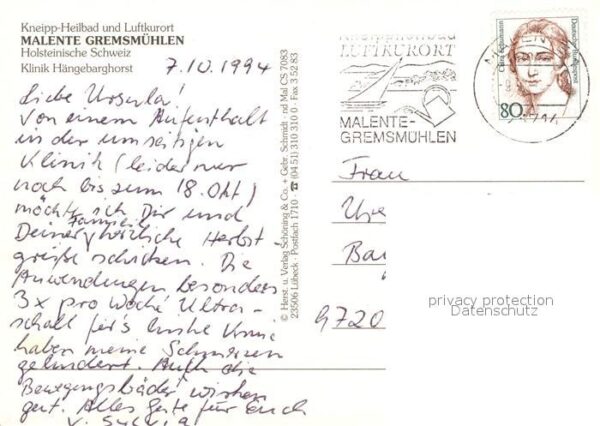 Kneipp-Heilbad und Luftkurort
MALENTE GREMSMÜHLEN
Holsteinische Schweiz
Klinik Hängebarghorst
7.10.1994
Liebe Ursula!
Von einem Aufenthalt
in der umseitigen
Klinik (leider nur
noch bis zum 18. Okt)
möchte ich Dir und
Deiner Familie herzliche Herbst-
grüße schicken. Die
Anwendungen besonders
3x pro Woche Ultra-
schall für's linke Knie
haben meine Schmerzen
gelindert. Auch die
Bewegungsbäder wirken
gut. Alles Gute für Euch
v. Sylvia
© Herst. u. Verlag Schöning & Co. + Gebr. Schmidt · nd Mal CS 7083
23506 Lübeck · Postfach 1710 · ☎ (04 51) 310 310 0 · Fax 3 52 83
LUFTKURORT
MALENTE-
GREMSMÜHLEN
Clara Schumann
Deutsche Bundespost
80
Frau
9720
privacy protection
Datenschutz